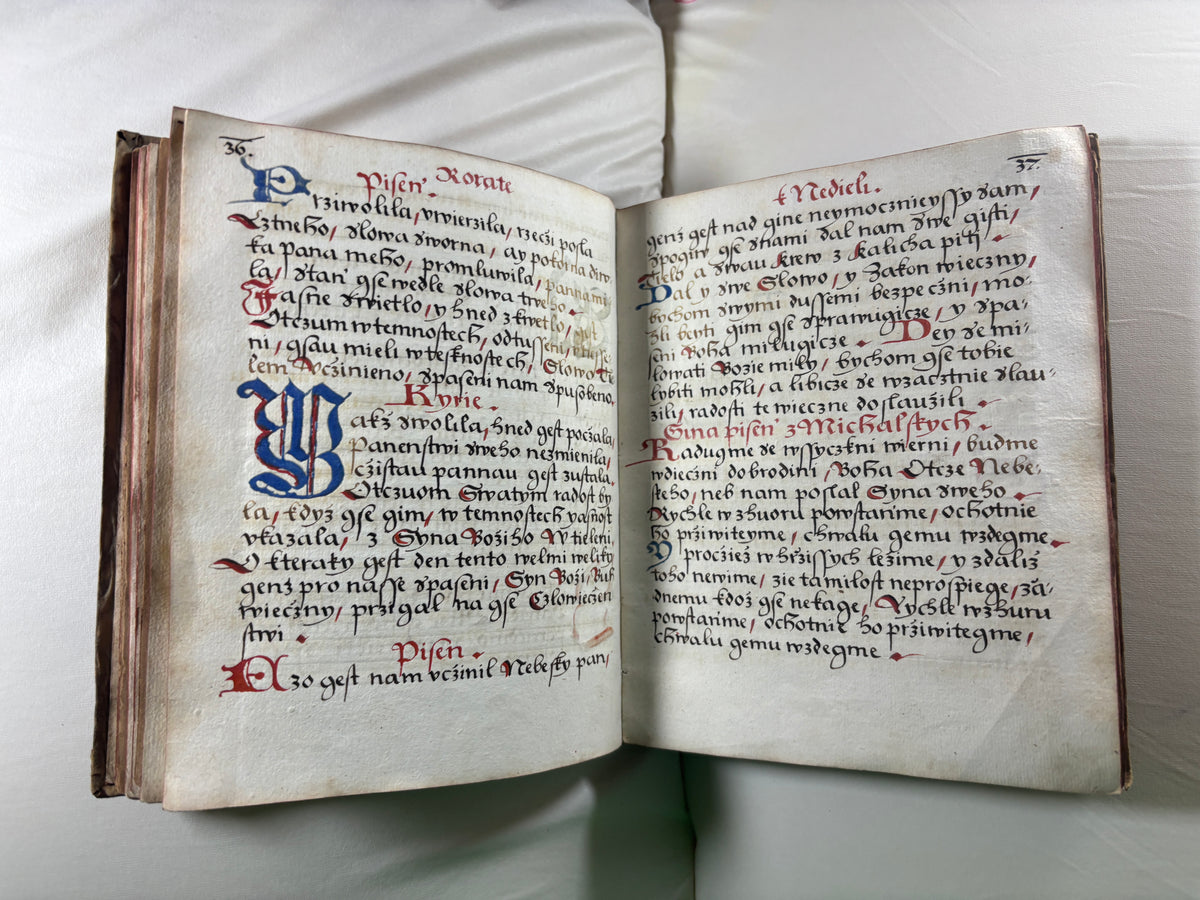 36.
Piseň Rorate
Przizwolila, vwierzila, rzeczi posla
Cztneho, slowa sworna, ay pokorna diw
ka pana meho, promluwila, panna mi
la, Staň gse wedle slowa tweho.
Jasne Swietlo, y hned zkwetlo,
Otczum w temnostech, odtusseni,
ni, gsau mieli w tesknostech, Slowo Tie
lem Vcžinieno, spaseni nam spusobeno,
Kyrie.
Wakž swolila, hned gest počzala,
Panenstwi sweho nezmienila,
cžistau pannau gest zustala,
Otczuom Swatym radost by
la, kdyz gse gim, w temnostech yasnost
vkazala, z Syna Božiho Wtieleni,
O kteraky gest den tento welmi weliky
genž pro nasse spaseni, Syn Boži, Buh
wiecžny, przigal na gse Cžlowiecžen
stwi.
Piseň.
Azo gest nam vcžinil Nebesky pan,
37.
k Nedieli.
genž gest nad gine neymocznieyssy sam,
spogiw gse snami dal nam swe gisti,
Tielo a swau krew z Kalicha piti.
Dal y swe Slowo, y Zakon wiecžny,
bychom swymi dussemi bezpecžni, mo-
hli bẏti gim gse sprawugicze, y spa-
seni Boha milugicze. Dey se mi-
lowati Bozie mily, bychom gse tobie
libiti mohli, a libicze se wzacztnie slau-
žili, radosti te wiecžne doslaužili.
Gina piseň z Michalskych.
Radugme se wssyczkni wierni, budme
wdiecžni dobrodini, Boha Otcze Nebe-
skeho, neb nam poslal Syna sweho.
Rychle wzhuoru powstaňme, ochotnie
ho prziwiteyme, chwalu gemu wzdegme.
Y procžiež w hřzissych ležime, y zdaliž
toho newime, zie ta milost neprospiege, žá-
dnemu kdož gse nekage, Rychle wzhuru
powstaňme, ochotnie ho prziwitegme,
chwalu gemu wzdegme.